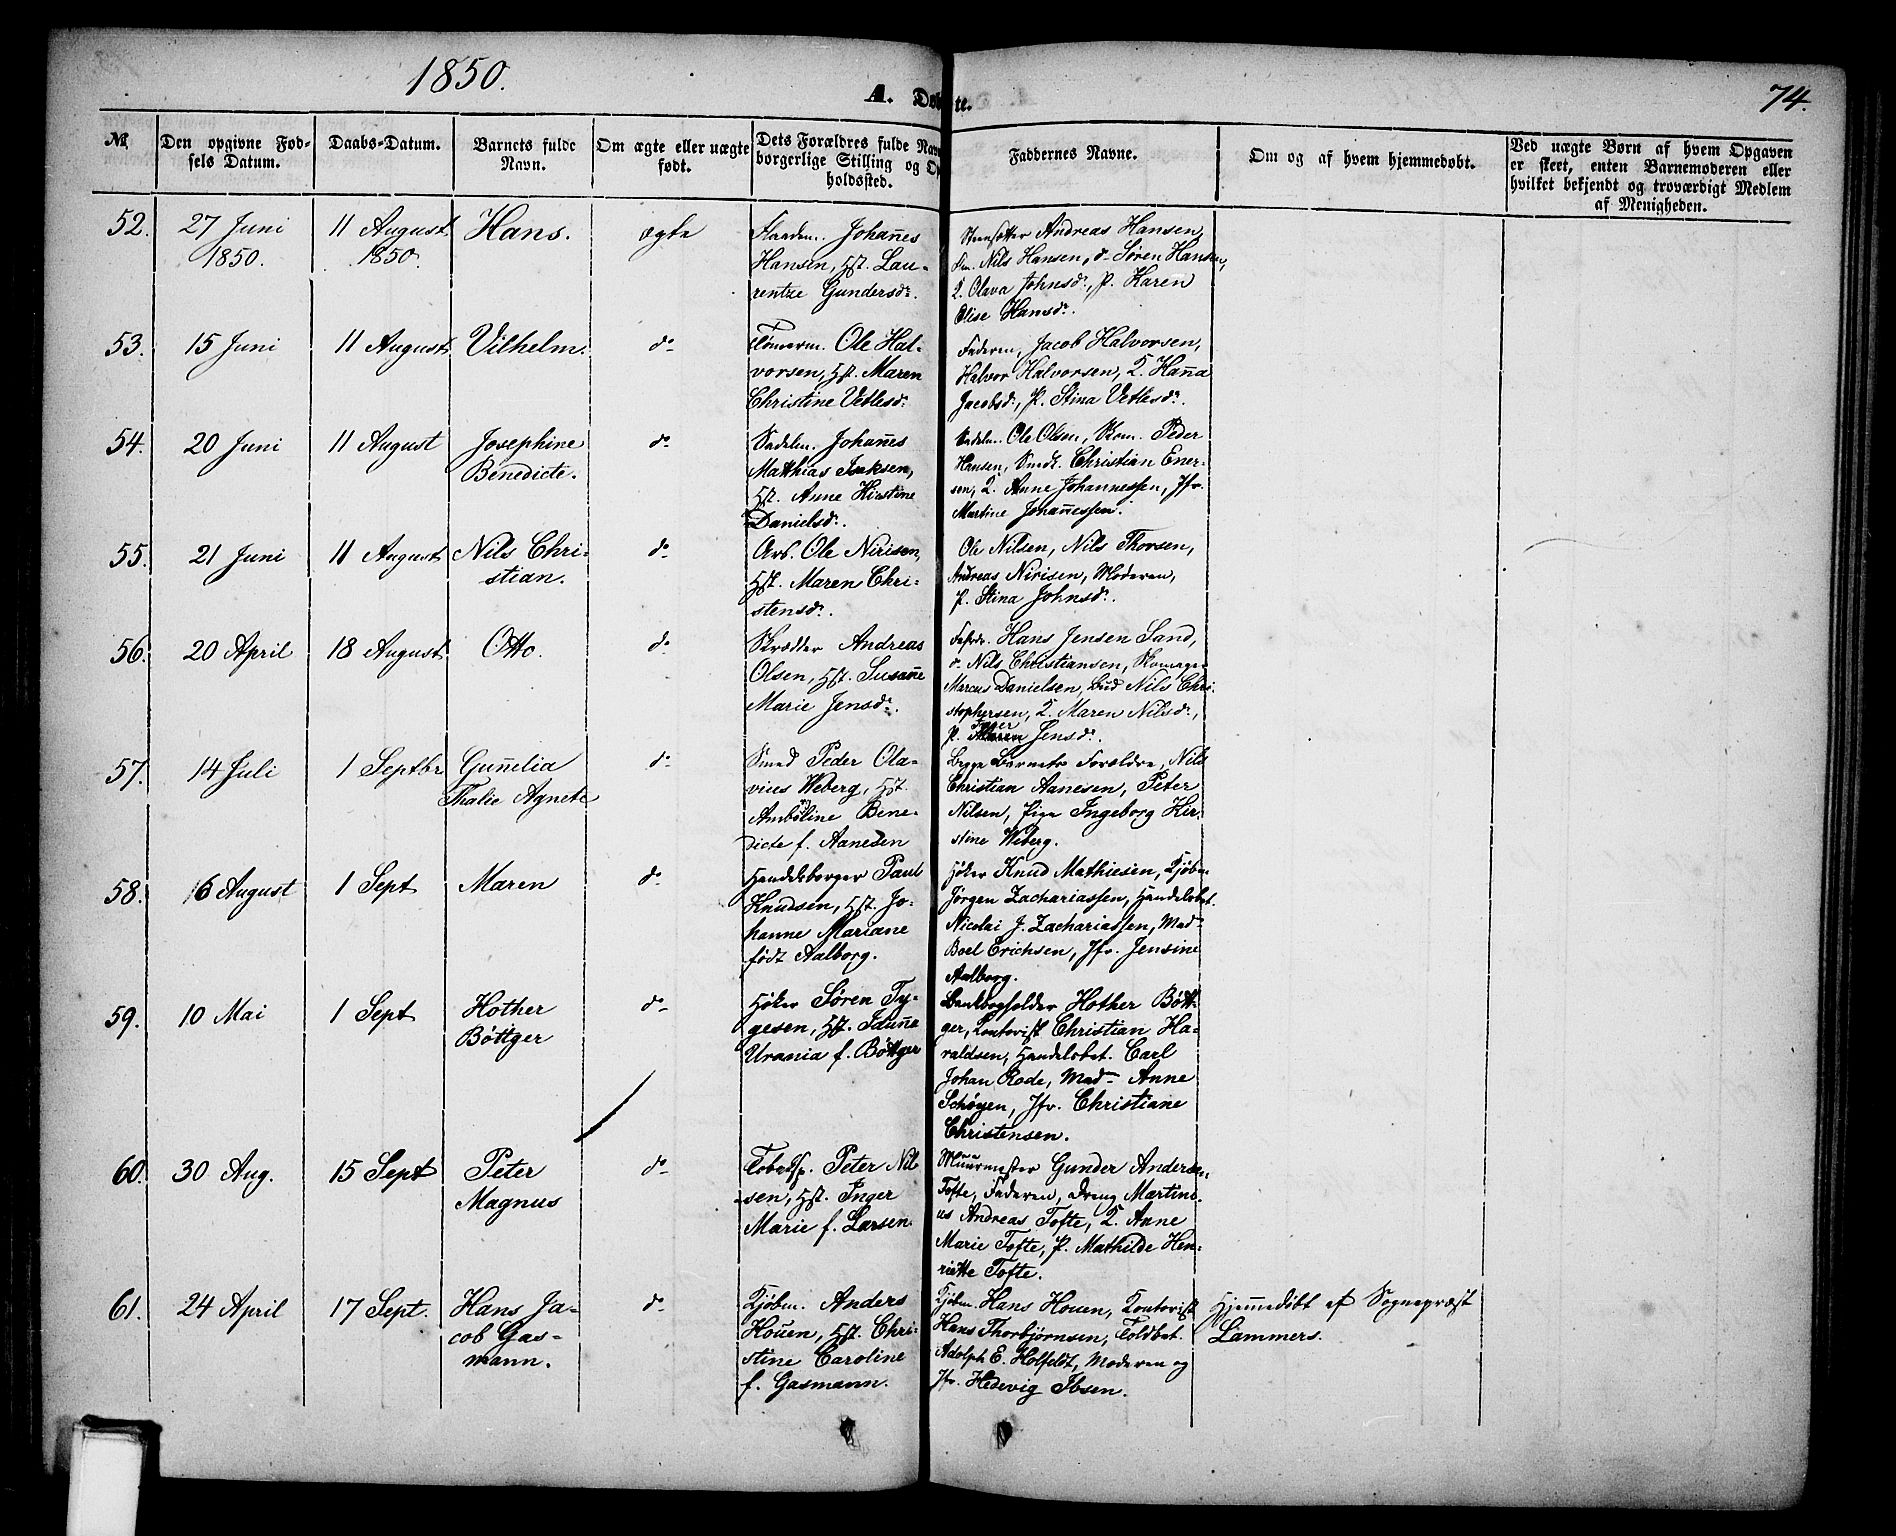 1850.
A. Døbte.
74.
№
Den opgivne Fød-
sels Datum.
Daabs-Datum.
Barnets fulde
Navn.
Om ægte eller uægte
født.
Dets Forældres fulde Navn
borgerlige Stilling og Op
holdssted.
Faddernes Navne.
Om og af hvem hjemmedøbt.
Ved uægte Børn af hvem Opgaven
er skeet, enten Barnemoderen eller
hvilket bekjendt og troværdigt Medlem
af Menigheden.
52.
27 Juni
1850.
11 August
1850.
Hans.
ægte
Johañes
Hansen, Hst. Lau-
rentze Gundersdr.
Steensætter Andreas Hansen,
Nils Hansen, do Søren Hansen,
2. Olava Johnsdr, P. Karen
Elise Hansdr.
53.
15 Juni
11 August
Vilhelm.
do
Tømerm. Ole Hal-
vorsen, Hst. Maren
Christine Vetlesdr.
Faderen, Jacob Halvorsen,
Halvor Halvorsen, 2. Haña
Jacobsdr, P. Stina Vetlesdr.
54.
20 Juni
11 August
Josephine
Benedicte.
do
Sadelm. Johañes
Matthias Isaksen,
Hst. Anne Kirstine
Danielsdr.
Sadelm. Ole Olsen, Skom. Peder
Hansen, Smedt. Christian Ener-
sen, 2. Anne Johannessen, Jfr.
Martine Johañessen.
55.
21 Juni
11 August
Nils Chri-
stian.
do
Arb. Ole Nirisen,
Hst. Maren Chri-
stensdr.
Ole Nilsen, Nils Thorsen,
Andreas Nirisen, Moderen,
P. Stina Johnsdr.
56.
20 April
18 August
Otto.
do
Skrædder Andreas
Olsen, Hst. Susañe
Marie Jensdr.
Hans Jensen Sand,
do Nils Christiansen, Skomager
Marcus Danielsen, Bud Nils Chri-
stophersen, 2. Maren Nilsdr,
P. Inger Jensdr.
57.
14 Juli
1 Septbr
Guñelia
Thalie Agnete
do
Smed Peder Ola-
vius Weberg, Hst.
Ambroline Bene-
dicte f. Aanesen
Begge Barnets Forældre, Nils
Christian Aanesen, Peter
Nilsen, Pige Ingeborg Kir-
stine Weberg.
58.
16 August
1 Sept
Maren
do
Handelsborger Paul
Knudsen, Hst. Jo-
hanne Mariane
født Aalborg.
Høker Knud Mathiesen, Kjøbm
Jørgen Zachariassen, Handelsbet.
Nicolai J. Zachariassen, Mad-
Boel Erichsen, Jfr. Jensine
Aalborg.
59.
10 Mai
1 Sept
Hother
Bøttger
do
Høker Søren Ty-
gesen, Hst. Iduñe
Urania f. Bøttger
Bankbogholder Hother Bøtt-
ger, Kontorist Christian Ha-
raldsen, Handelsbet. Carl
Johan Rode, Mad- Anne
Schøyen, Jfr. Christiane
Christensen.
60.
30 Aug.
15 Sept
Peter
Magnus
do
Peter Nil-
sen, Hst. Inger
Marie f. Larsen.
Muurmester Gunder Andersen
Tofte, Faderen, Dreng Martini-
us Andreas Tofte, 2. Anne
Marie Tofte, P. Mathilde Hen-
riette Tofte.
61.
24 April
17 Sept.
Hans Ja-
cob Gas-
mann.
do
Kjøbm. Anders
Houen, Hst. Chri-
stine Caroline
f. Gasmann.
Kjøbm. Hans Houen, Kontorist
Hans Thorbjørnsen, Toldbet.
Adolph E. Holfeldt, Moderen og
Jfr. Hedevig Ibsen.
Hjeñedøbt af Sognepræst
Lammers.